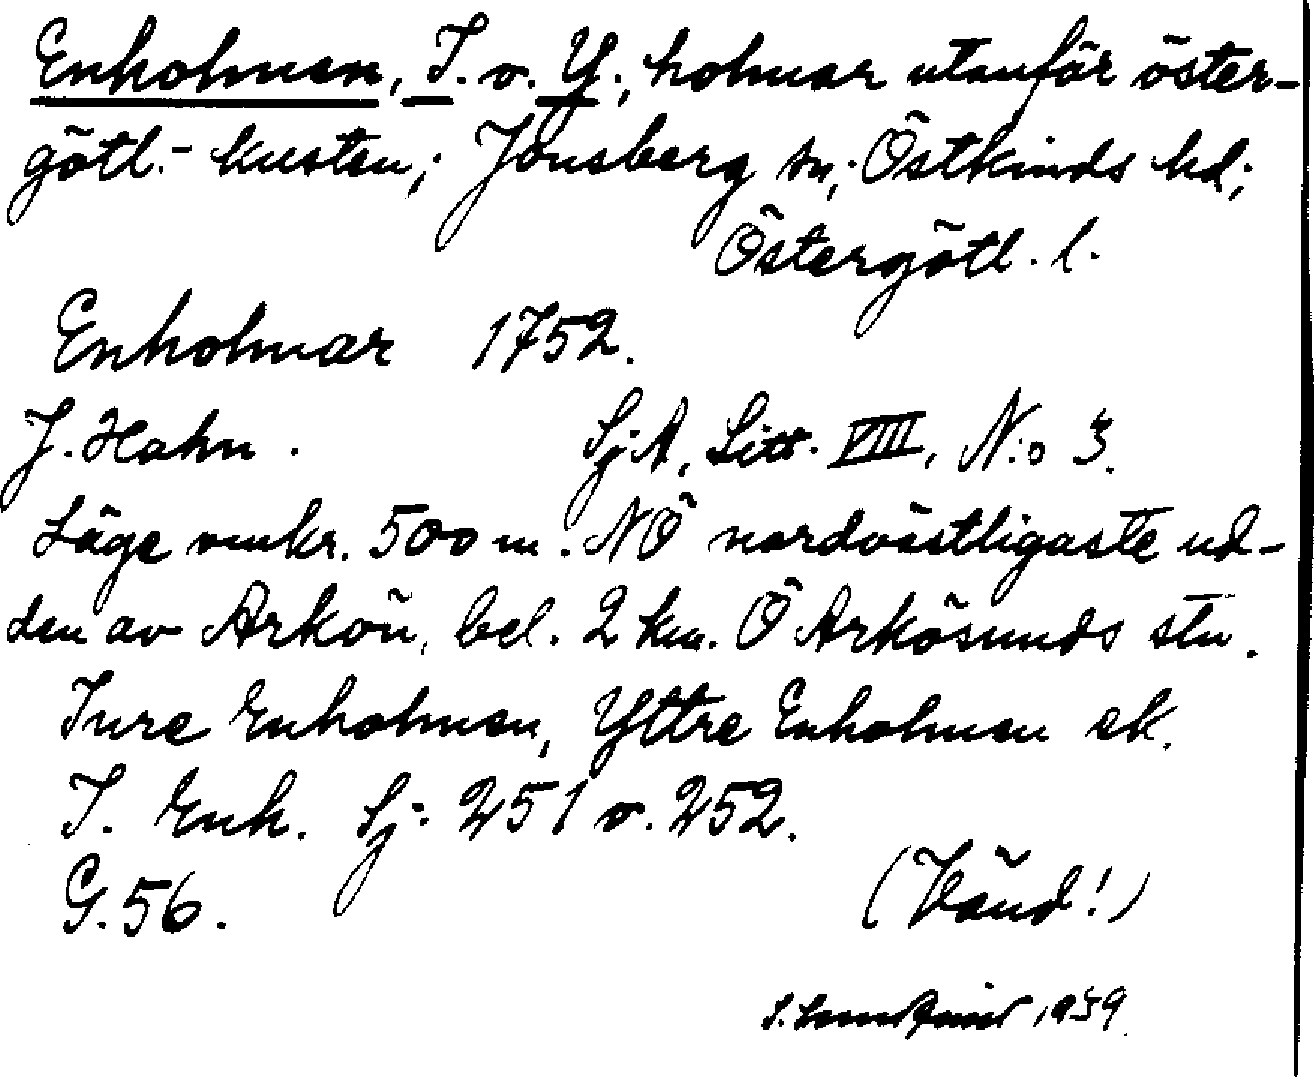 Enholmen, I. o. Y.; holmar utanför öster-
götl.- kusten; Jonsberg sn; Östkinds hd;
Östergötl. l.
Enholmar 1752.
J. Hahn. Sj.A, Litt. VIII, N:o 3.
Läge omkr. 500 m. NÖ nordvästligaste ud-
den av Arkön, bel. 2 km. Ö Arkösunds stn.
Inre Enholmen, Yttre Enholmen ek.
I. Enh. Sj. 251 o. 252.
G. 56. (Vänd!)
S. 1939.